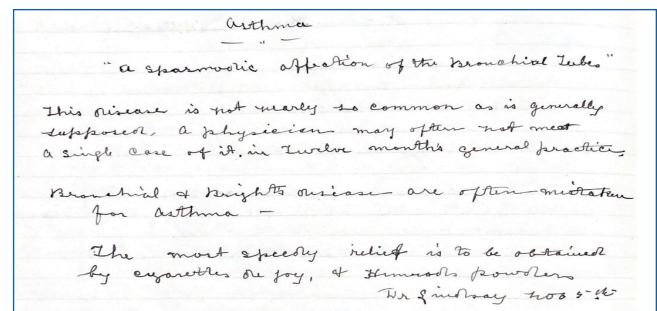 Asthma
— " —
"a spasmodic affection of the Bronchial Tubes"
This disease is not nearly so common as is generally
supposed. A physician may often not meet
a single case of it, in Twelve months general practice.
Bronchial & Brights disease are often mistaken
for asthma —
The most speedy relief is to be obtained
by cigarettes de joy, & Himrods powders
Dr Lindsay Nov 5th